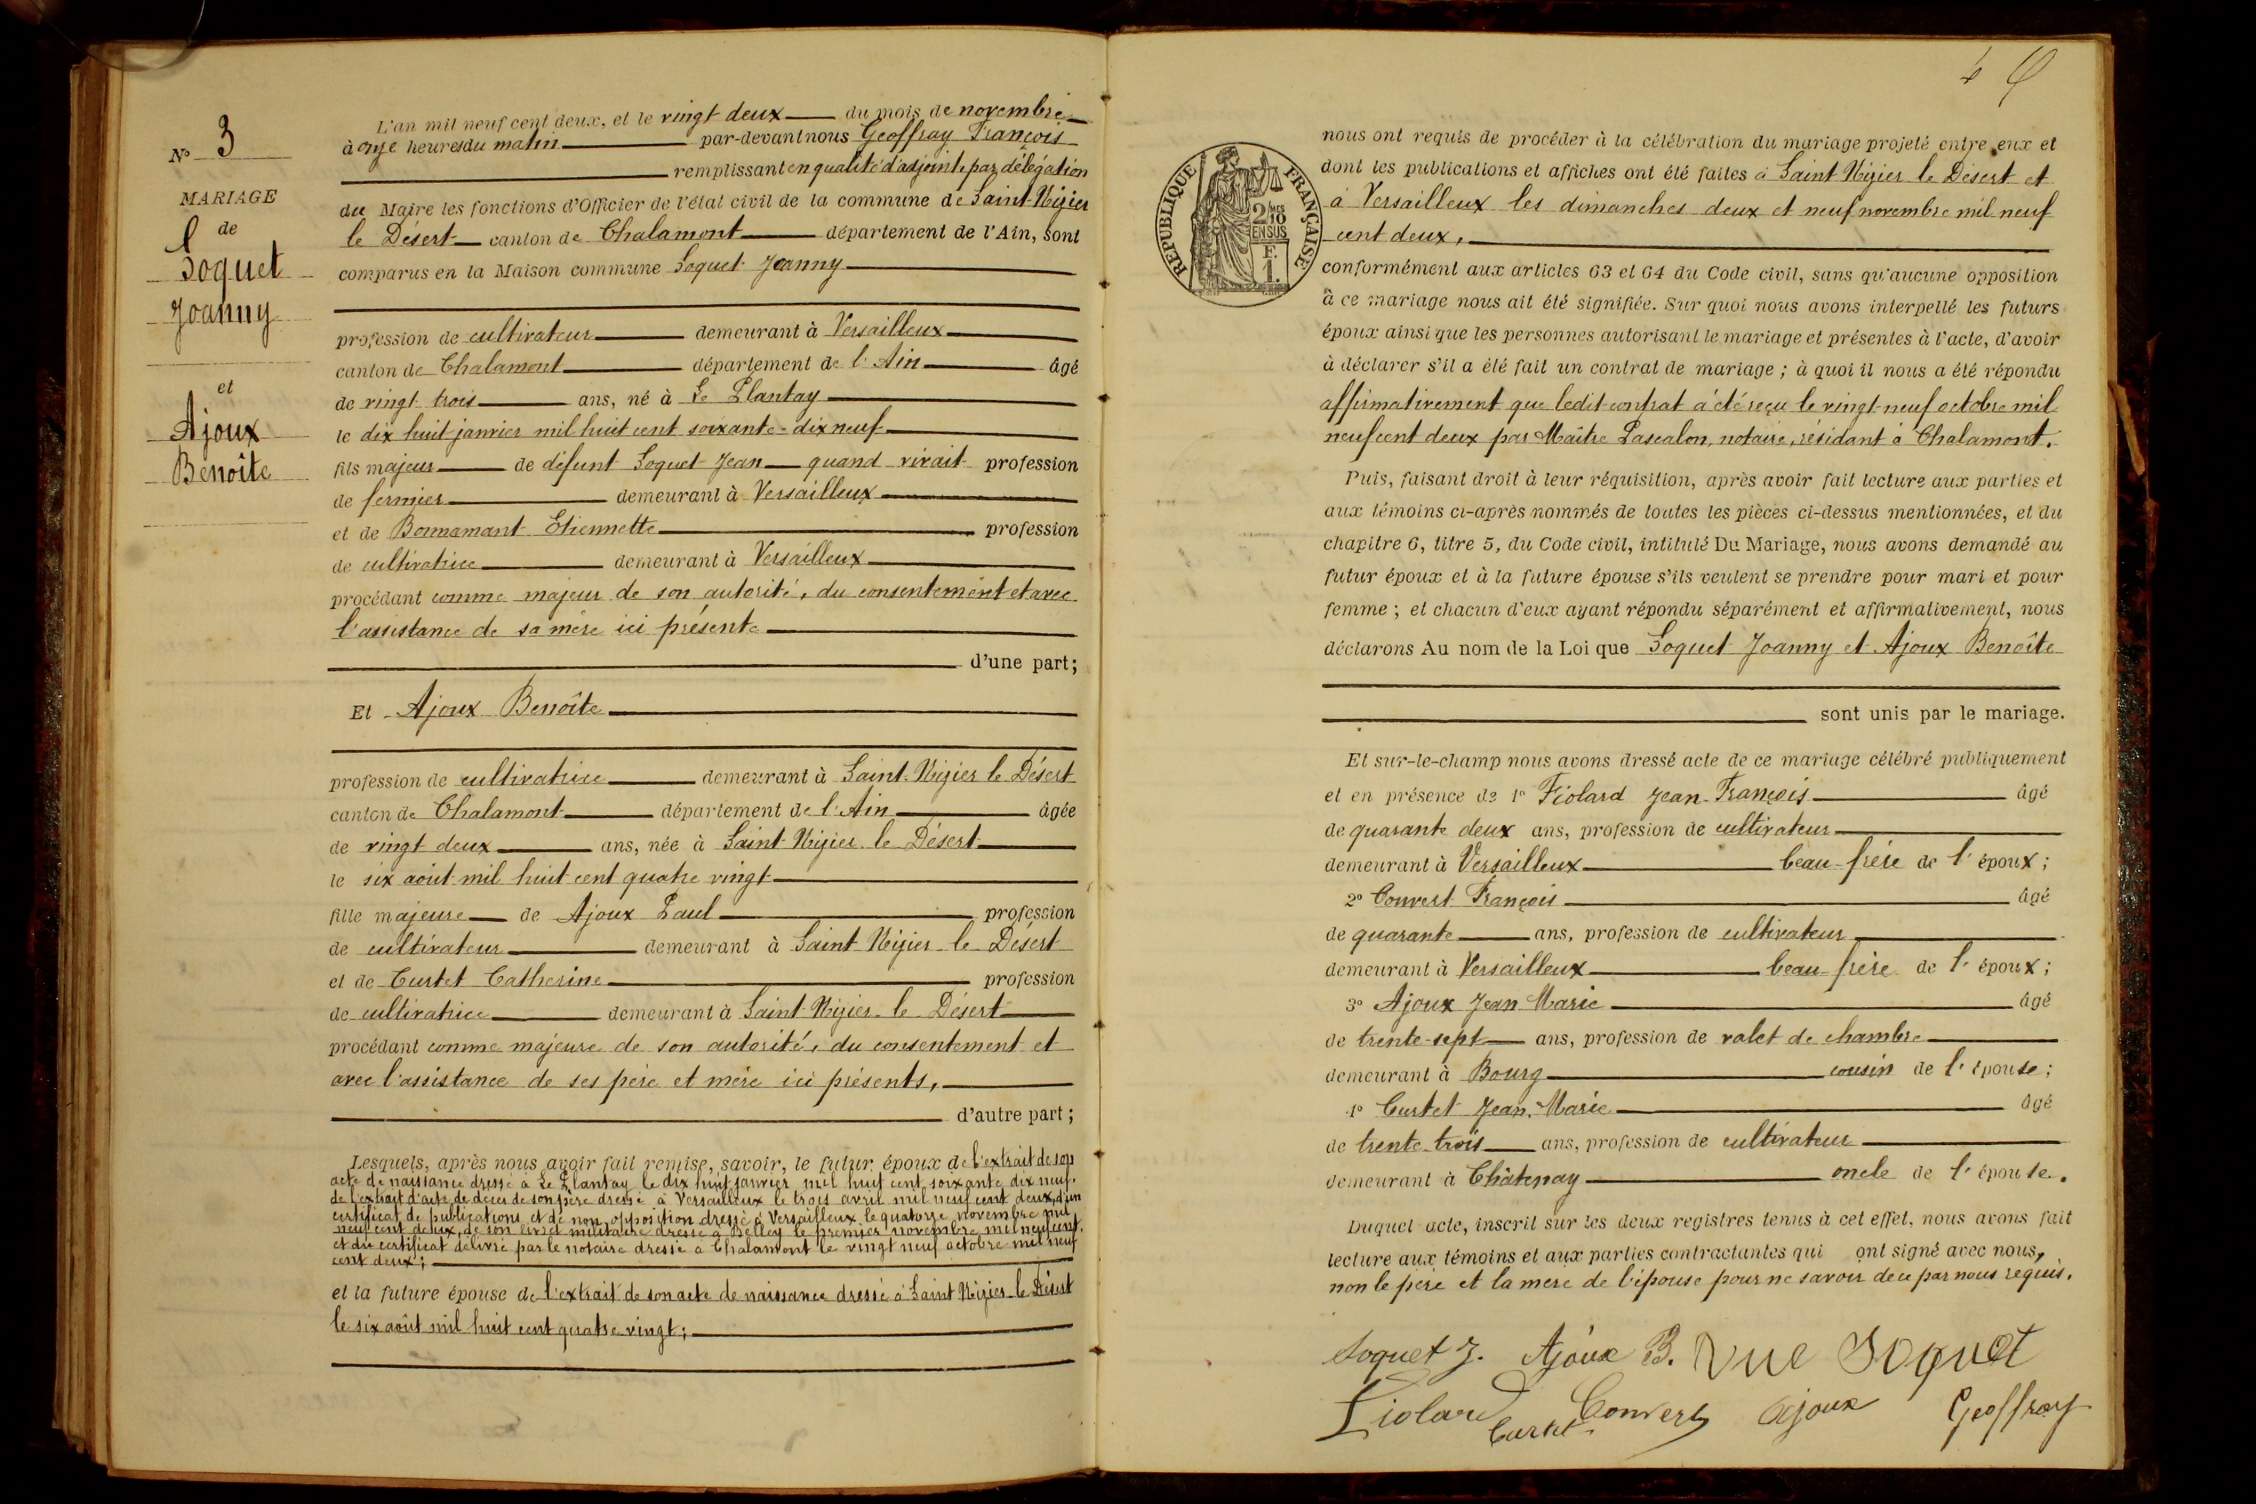 N° 3
MARIAGE
de
Soquet
Joanny
et
Ajoux
Benoîte
L'an mil neuf cent deux, et le vingt deux du mois de novembre
à onze heures du matin par-devant nous Geoffray François
remplissant en qualité d'adjoint et par délégation
du Maire les fonctions d'Officier de l'état civil de la commune de Saint-Nizier
le Désert canton de Chalamont département de l'Ain, sont
comparus en la Maison commune Soquet Joanny
profession de cultivateur demeurant à Versailleux
canton de Chalamont département de l'Ain âgé
de vingt trois ans, né à Le Plantay
le dix huit janvier mil huit cent soixante-dix neuf
fils majeur de défunt Soquet Jean quand vivait profession
de fermier demeurant à Versailleux
et de Bonnamant Etiennette profession
de cultivatrice demeurant à Versailleux
procédant comme majeur de son autorité, du consentement et avec
l'assistance de sa mère ici présente
d'une part;
Et Ajoux Benoîte
profession de cultivatrice demeurant à Saint-Nizier le Désert
canton de Chalamont département de l'Ain âgée
de vingt deux ans, née à Saint Nizier le Désert
le six août mil huit cent quatre vingt
fille majeure de Ajoux Paul profession
de cultivateur demeurant à Saint Nizier le Désert
et de Curtet Catherine profession
de cultivatrice demeurant à Saint Nizier le Désert
procédant comme majeure de son autorité, du consentement et
avec l'assistance de ses père et mère ici présents,
d'autre part;
Lesquels, après nous avoir fait remise, savoir, le futur époux de l'extrait de son
acte de naissance dressé à Le Plantay le dix huit janvier mil huit cent soixante dix neuf,
de l'extrait d'acte de décès de son père dressé à Versailleux le trois avril mil neuf cent deux, d'un
certificat de publications et de non opposition dressé à Versailleux le quatorze novembre mil
neuf cent deux, de son livret militaire dressé à Belley le premier novembre mil neuf cent,
et du certificat délivré par le notaire dressé à Chalamont le vingt neuf octobre mil neuf
cent deux;
et la future épouse de l'extrait de son acte de naissance dressé à Saint Nizier le Désert
le six août mil huit cent quatre vingt;
4
RÉPUBLIQUE FRANÇAISE
2/10
EN SUS
F.
1.
nous ont requis de procéder à la célébration du mariage projeté entre eux et
dont les publications et affiches ont été faites à Saint Nizier le Désert et
à Versailleux les dimanches deux et neuf novembre mil neuf
cent deux,
conformément aux articles 63 et 64 du Code civil, sans qu'aucune opposition
à ce mariage nous ait été signifiée. Sur quoi nous avons interpellé les futurs
époux ainsi que les personnes autorisant le mariage et présentes à l'acte, d'avoir
à déclarer s'il a été fait un contrat de mariage ; à quoi il nous a été répondu
affirmativement que ledit contrat a été reçu le vingt-neuf octobre mil
neuf cent deux par Maître Pascalon, notaire, résidant à Chalamont.
Puis, faisant droit à leur réquisition, après avoir fait lecture aux parties et
aux témoins ci-après nommés de toutes les pièces ci-dessus mentionnées, et du
chapitre 6, titre 5, du Code civil, intitulé Du Mariage, nous avons demandé au
futur époux et à la future épouse s'ils veulent se prendre pour mari et pour
femme ; et chacun d'eux ayant répondu séparément et affirmativement, nous
déclarons Au nom de la Loi que Soquet Joanny et Ajoux Benoîte
sont unis par le mariage.
Et sur-le-champ nous avons dressé acte de ce mariage célébré publiquement
et en présence de 1° Fiolard Jean-François âgé
de quarante deux ans, profession de cultivateur
demeurant à Versailleux beau-frère de l'époux;
2° Convert François âgé
de quarante ans, profession de cultivateur
demeurant à Versailleux beau-frère de l'époux;
3° Ajoux Jean Marie âgé
de trente-sept ans, profession de valet de chambre
demeurant à Bourg cousin de l'épouse;
4° Curtet Jean-Marie âgé
de trente-trois ans, profession de cultivateur
demeurant à Châtenay oncle de l'épouse.
Duquel acte, inscrit sur les deux registres tenus à cet effet, nous avons fait
lecture aux témoins et aux parties contractantes qui ont signé avec nous,
non le père et la mère de l'épouse pour ne savoir de ce par nous requis.
Soquet J. Ajoux B. Vve Soquet
Fiolard Curtet Convert Ajoux Geoffray